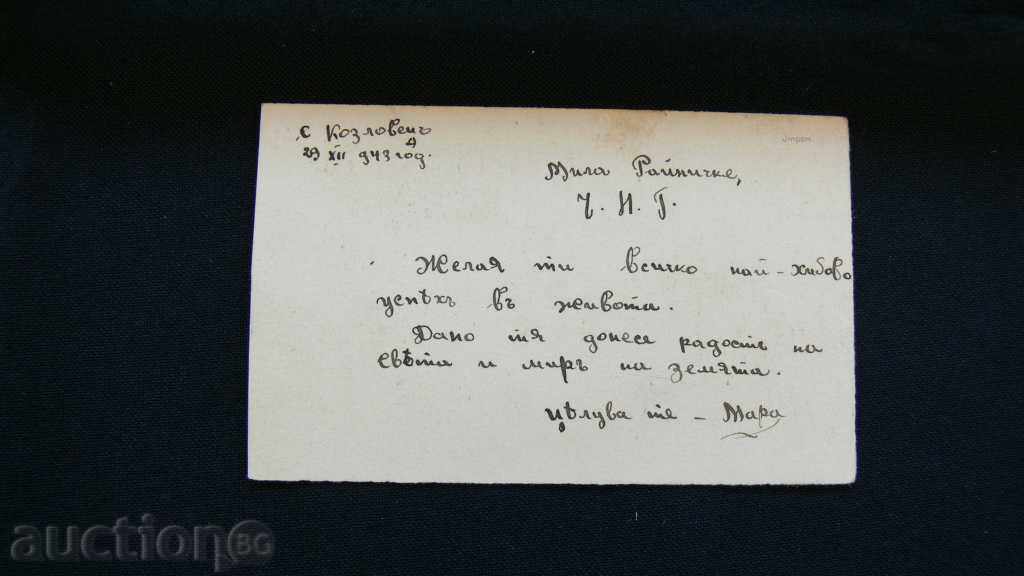 с Козловецъ
29 XII 943 год.
Мила Райничке,
Ч. Н. Г.
Желая ти всичко най-хубово
успѣхъ въ живота.
Дано тя донесе радость на
свѣта и миръ на земята.
Цѣлува те - Мара
auctionBG